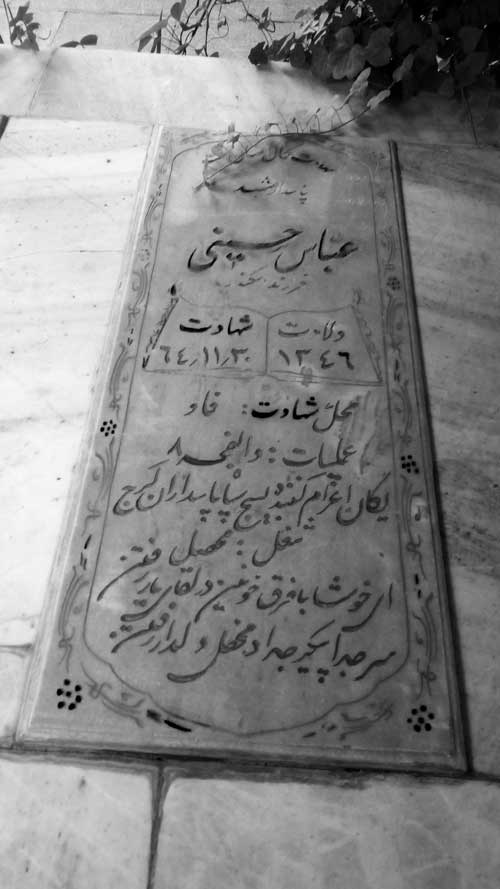 پاسدار شهید
عباس حسینی
فرزند
ولادت شهادت
۱۳۴۶ ۶۴/۱۱/۳۰
محل شهادت: فاو
عملیات: والفجر ۸
یگان اعزام کننده بسیج سپاه پاسداران کرج
شغل: محصل
ای خوشا با فرق خونین در لقای یار رفتن
سر جدا پیکر جدا در محفل دلدار رفتن